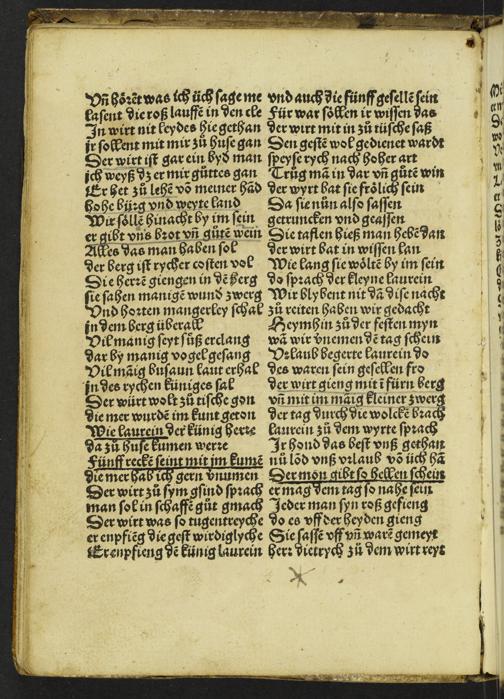 Vñ hörēt was ich üch sage me
lasent die roß lauffē in den cle
In wirt nit leydes hie gethan
ir sollent mit mir zů huse gan
Der wirt ist gar ein byd man
ich weyß dz er mir güttes gan
Er het zů lehē vō meiner hād
hohe bürg vnd weyte land
Wir söllē hinacht by im sein
er gibt vn̄s brot vñ gůtē wein
Alles das man haben sol
der berg ist rycher costen vol
Die herrē giengen in dē berg
sie sahen manigē wund zwerg
Vnd horten mangerley schal
jn dem berg überall
Vil manig seyt süß erclang
dar by manig vogel gesang
Vil māig busaun laut erhal
jn des rychen küniges sal
Der würt wolt zů tische gon
die mer wurdē im kunt geton
Wie laurein der künig herre
da zů huse kumen werre
Fünff reckē seint mit jm kumē
die mer hab ich gern vnumen
Der wirt zů sym gsind sprach
man sol in schaffē güt gmach
Der wirt was so tugentreyche
er enpfiēg die gest wirdiglyche
Er enpfieng dē künig laurein
vnd auch die fünff gesellē sein
Für war söllen ir wissen das
der wirt mit in zů tüsche saß
Den gestē wol gedienet wardt
speyse rych nach hoher art
Trůg mā in dar vñ gůtē win
der wyrt bat sie frölich sein
Da sie nün also sassen
getruncken vnd geassen
Die taflen hieß man hebē dan
der wirt bat in wissen lan
Wie lang sie wöltē by im sein
do sprach der kleyne laurein
Wir blybent nit dā dise nacht
zů reiten haben wir gedacht
Heymhin zů der festen myn
wā wir vnemen dē tag schein
Vrlaub begerte laurein do
des waren sein gesellen fro
der wirt gieng mit ē fürn berg
vñ mit im māig kleiner zwerg
der tag durch die wolckē brach
laurein zů dem wyrte sprach
Ir hond das best vnß gethan
nü lōd vnß vrlaub vō üch hā
Der mon gibt so hellen schein
er mag dem tag so nahe sein
Jeder man syn roß gefieng
do es vff der heyden gieng
Sie sassē vff vñ warē gemeyt
herr dietrych zů dem wirt reyt